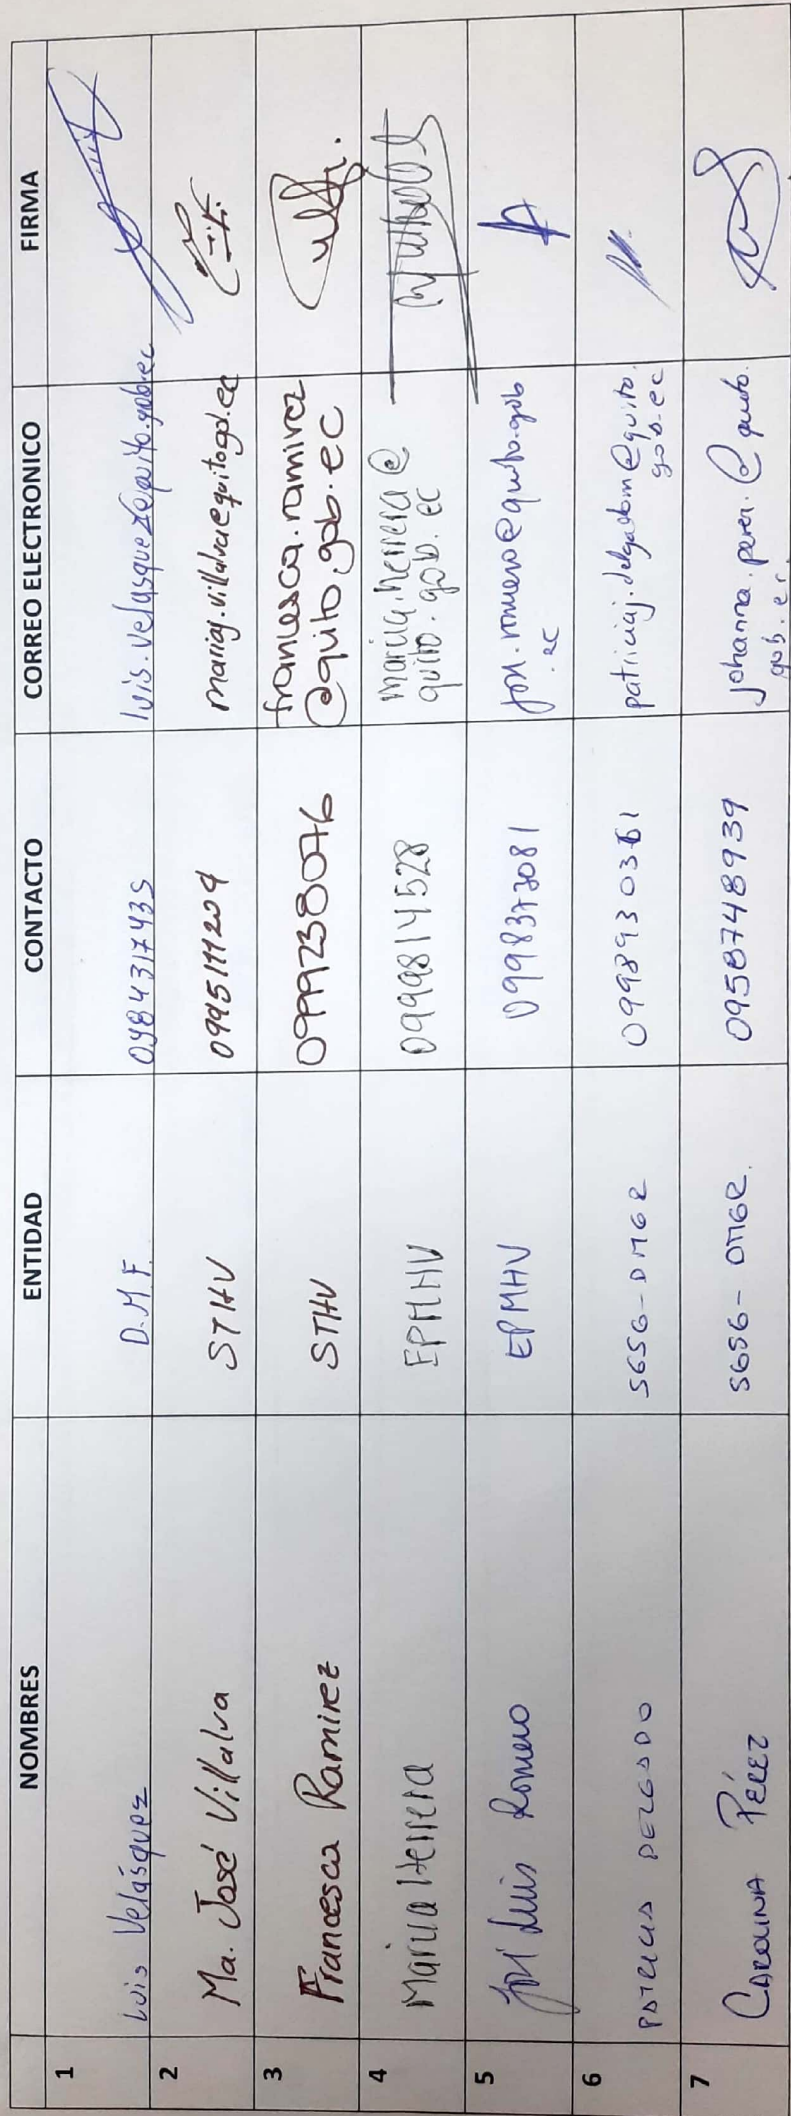 NOMBRES ENTIDAD CONTACTO CORREO ELECTRONICO FIRMA
1 Luis Velásquez D.M.F. 0984317435 luis.velasquez@quito.gob.ec
2 Ma. José Villalva STHV 0995111204 mariaj.villalva@quito.gob.ec
3 Francesca Ramirez STHV 0999238076 francesca.ramirez
@quito.gob.ec
4 Herrera EPMHV 0999814528 herrera@
quito.gob.ec
5 José Luis Romero EPMHV 0998373081 jose.romero@quito.gob
.ec
6 PATRICIA DELGADO SGSG-DMGR patriciaj.delgadom@quito.
gob.ec
7 CAROLINA PÉREZ SGSG-DMGR. 0958748939 johanna.perez.@quito.
gob.ec.